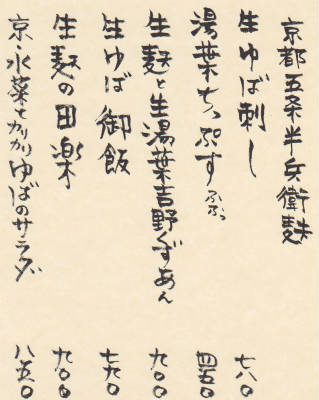 京都五条半兵衛麩
生ゆば刺し 七八〇
湯葉ちっぷす ふふっ 四五〇
生麩と生湯葉吉野くずあん 九〇〇
生ゆば御飯 七七〇
生麩の田楽 九〇〇
京・水菜とカリカリゆばのサラダ 八五〇